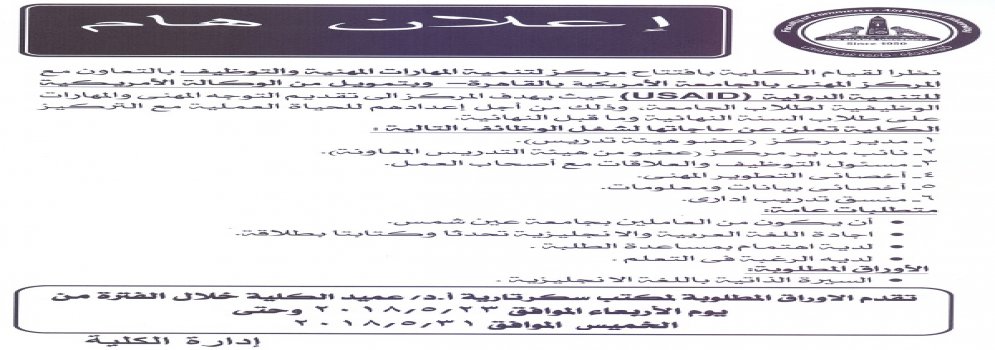 إعلان هام
Faculty of Commerce - Ain Shams University
Since 1950
نظرا لقيام الكلية بافتتاح مركز لتنمية المهارات المهنية والتوظيف بالتعاون مع
المركز المهنى بالجامعة الأمريكية بالقاهرة وبتمويل من الوكالة الأمريكية
للتنمية الدولية (USAID) حيث يهدف المركز الى تقديم التوجه المهنى والمهارات
الوظيفية لطلاب الجامعة، وذلك من أجل إعدادهم للحياة العملية مع التركيز
على طلاب السنة النهائية وما قبل النهائية.
الكلية تعلن عن حاجاتها لشغل الوظائف التالية :
١- مدير مركز (عضو هيئة تدريس).
٢- نائب مدير مركز (عضو من هيئة التدريس المعاونة).
٣- مسئول التوظيف والعلاقات مع أصحاب العمل.
٤- أخصائى التطوير المهنى.
٥- أخصائى بيانات ومعلومات.
٦- منسق تدريب إدارى.
متطلبات عامة:
• أن يكون من العاملين بجامعة عين شمس.
• اجادة اللغة العربية والانجليزية تحدثا وكتابتا بطلاقة.
• لدية اهتمام بمساعدة الطلبة .
• لديه الرغبة فى التعلم .
الأوراق المطلوبة:
• السيرة الذاتية باللغة الانجليزية .
تقدم الاوراق المطلوبة لمكتب سكرتارية أ.د/ عميد الكلية خلال الفترة من
يوم الأربعاء الموافق ٢٠١٨/٥/٢٣ وحتى
الخميس الموافق ٢٠١٨/٥/٣١
إدارة الكلية